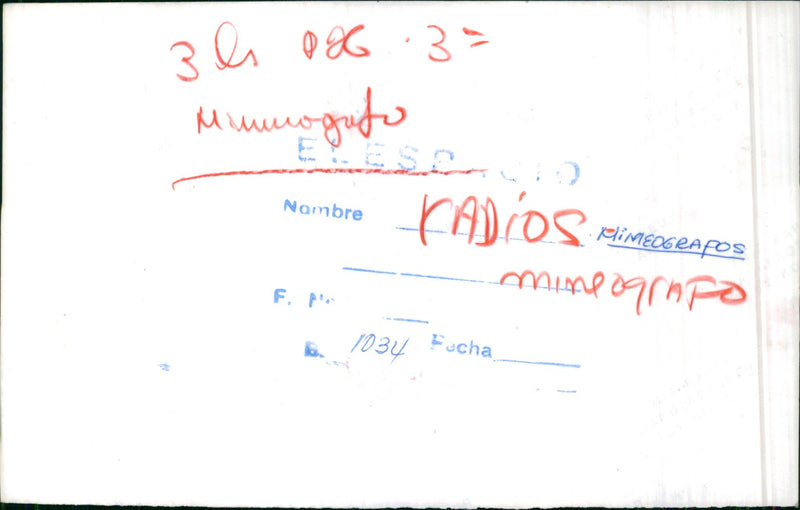 3
Mimeografo
EL ESPACIO
Nombre RADIOS MIMEOGRAFOS
mimeografo
F. No
B. 1034 Fecha